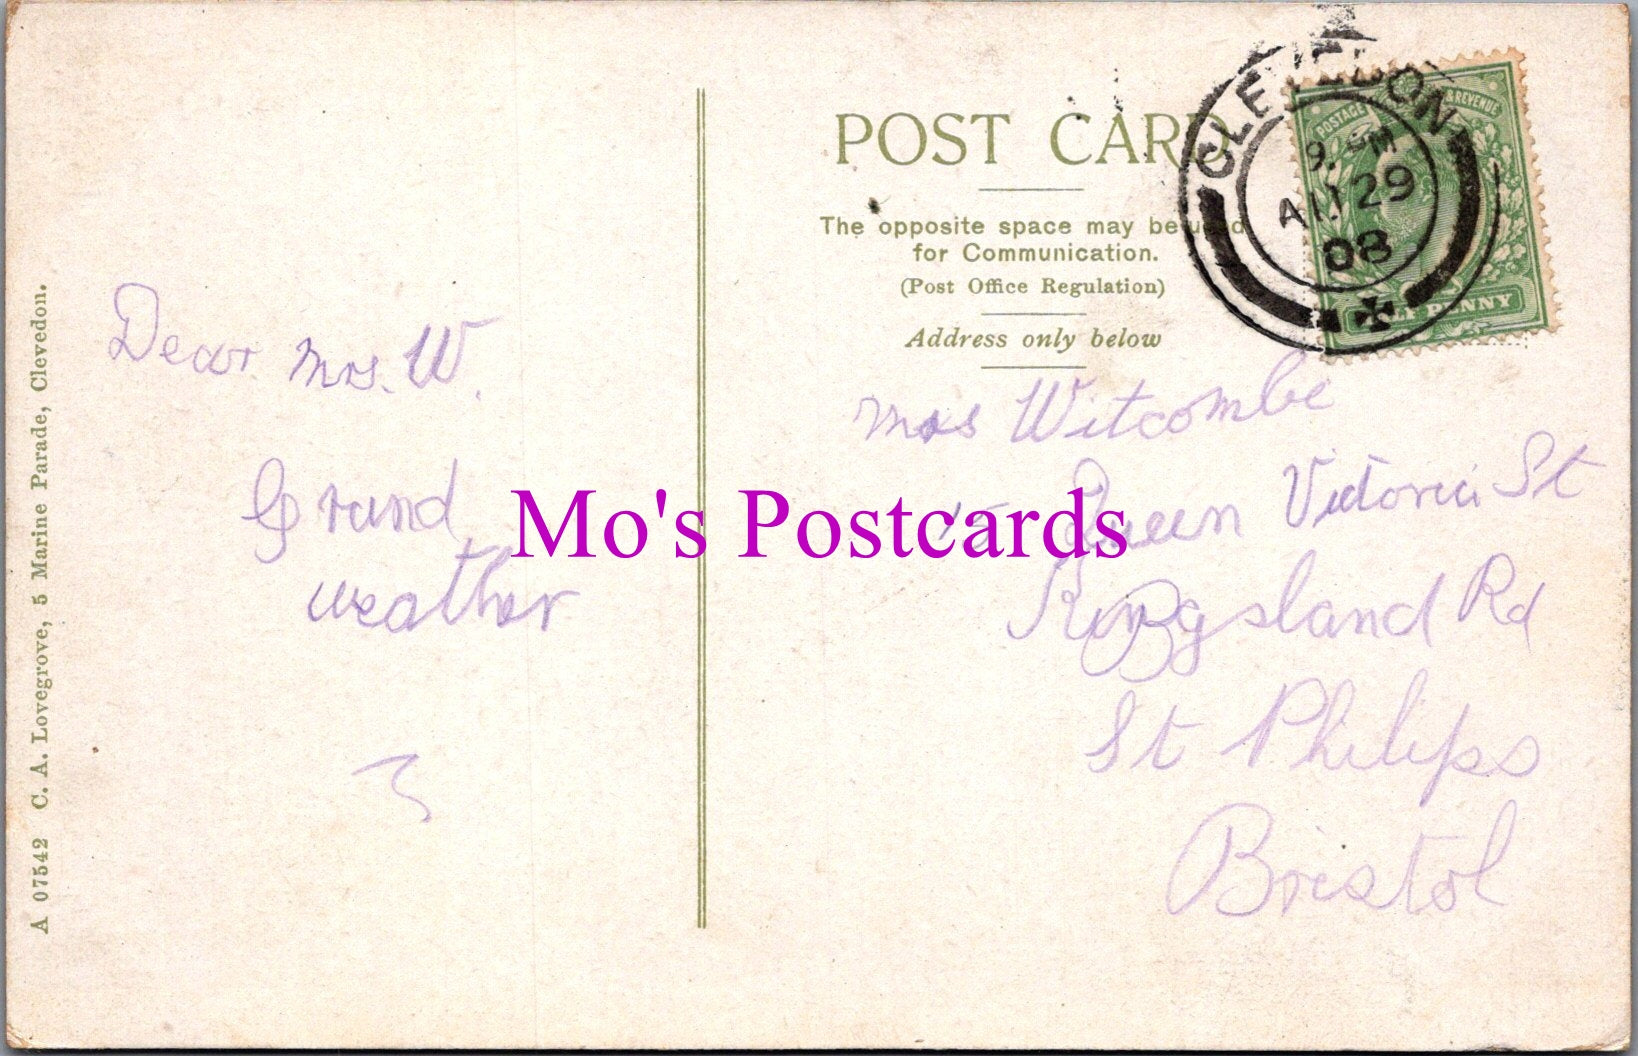 POST CARD
The opposite space may be used
for Communication.
(Post Office Regulation)
Address only below
CLEVEDON
9. PM
AU 29
08
POSTAGE & REVENUE
HALF PENNY
A 07542 C. A. Lovegrove, 5 Marine Parade, Clevedon.
Dear Mrs. W.
Grand
weather
Mrs Witcombe
15 Queen Victoria St
Kingsland Rd
St Philips
Bristol
Mo's Postcards